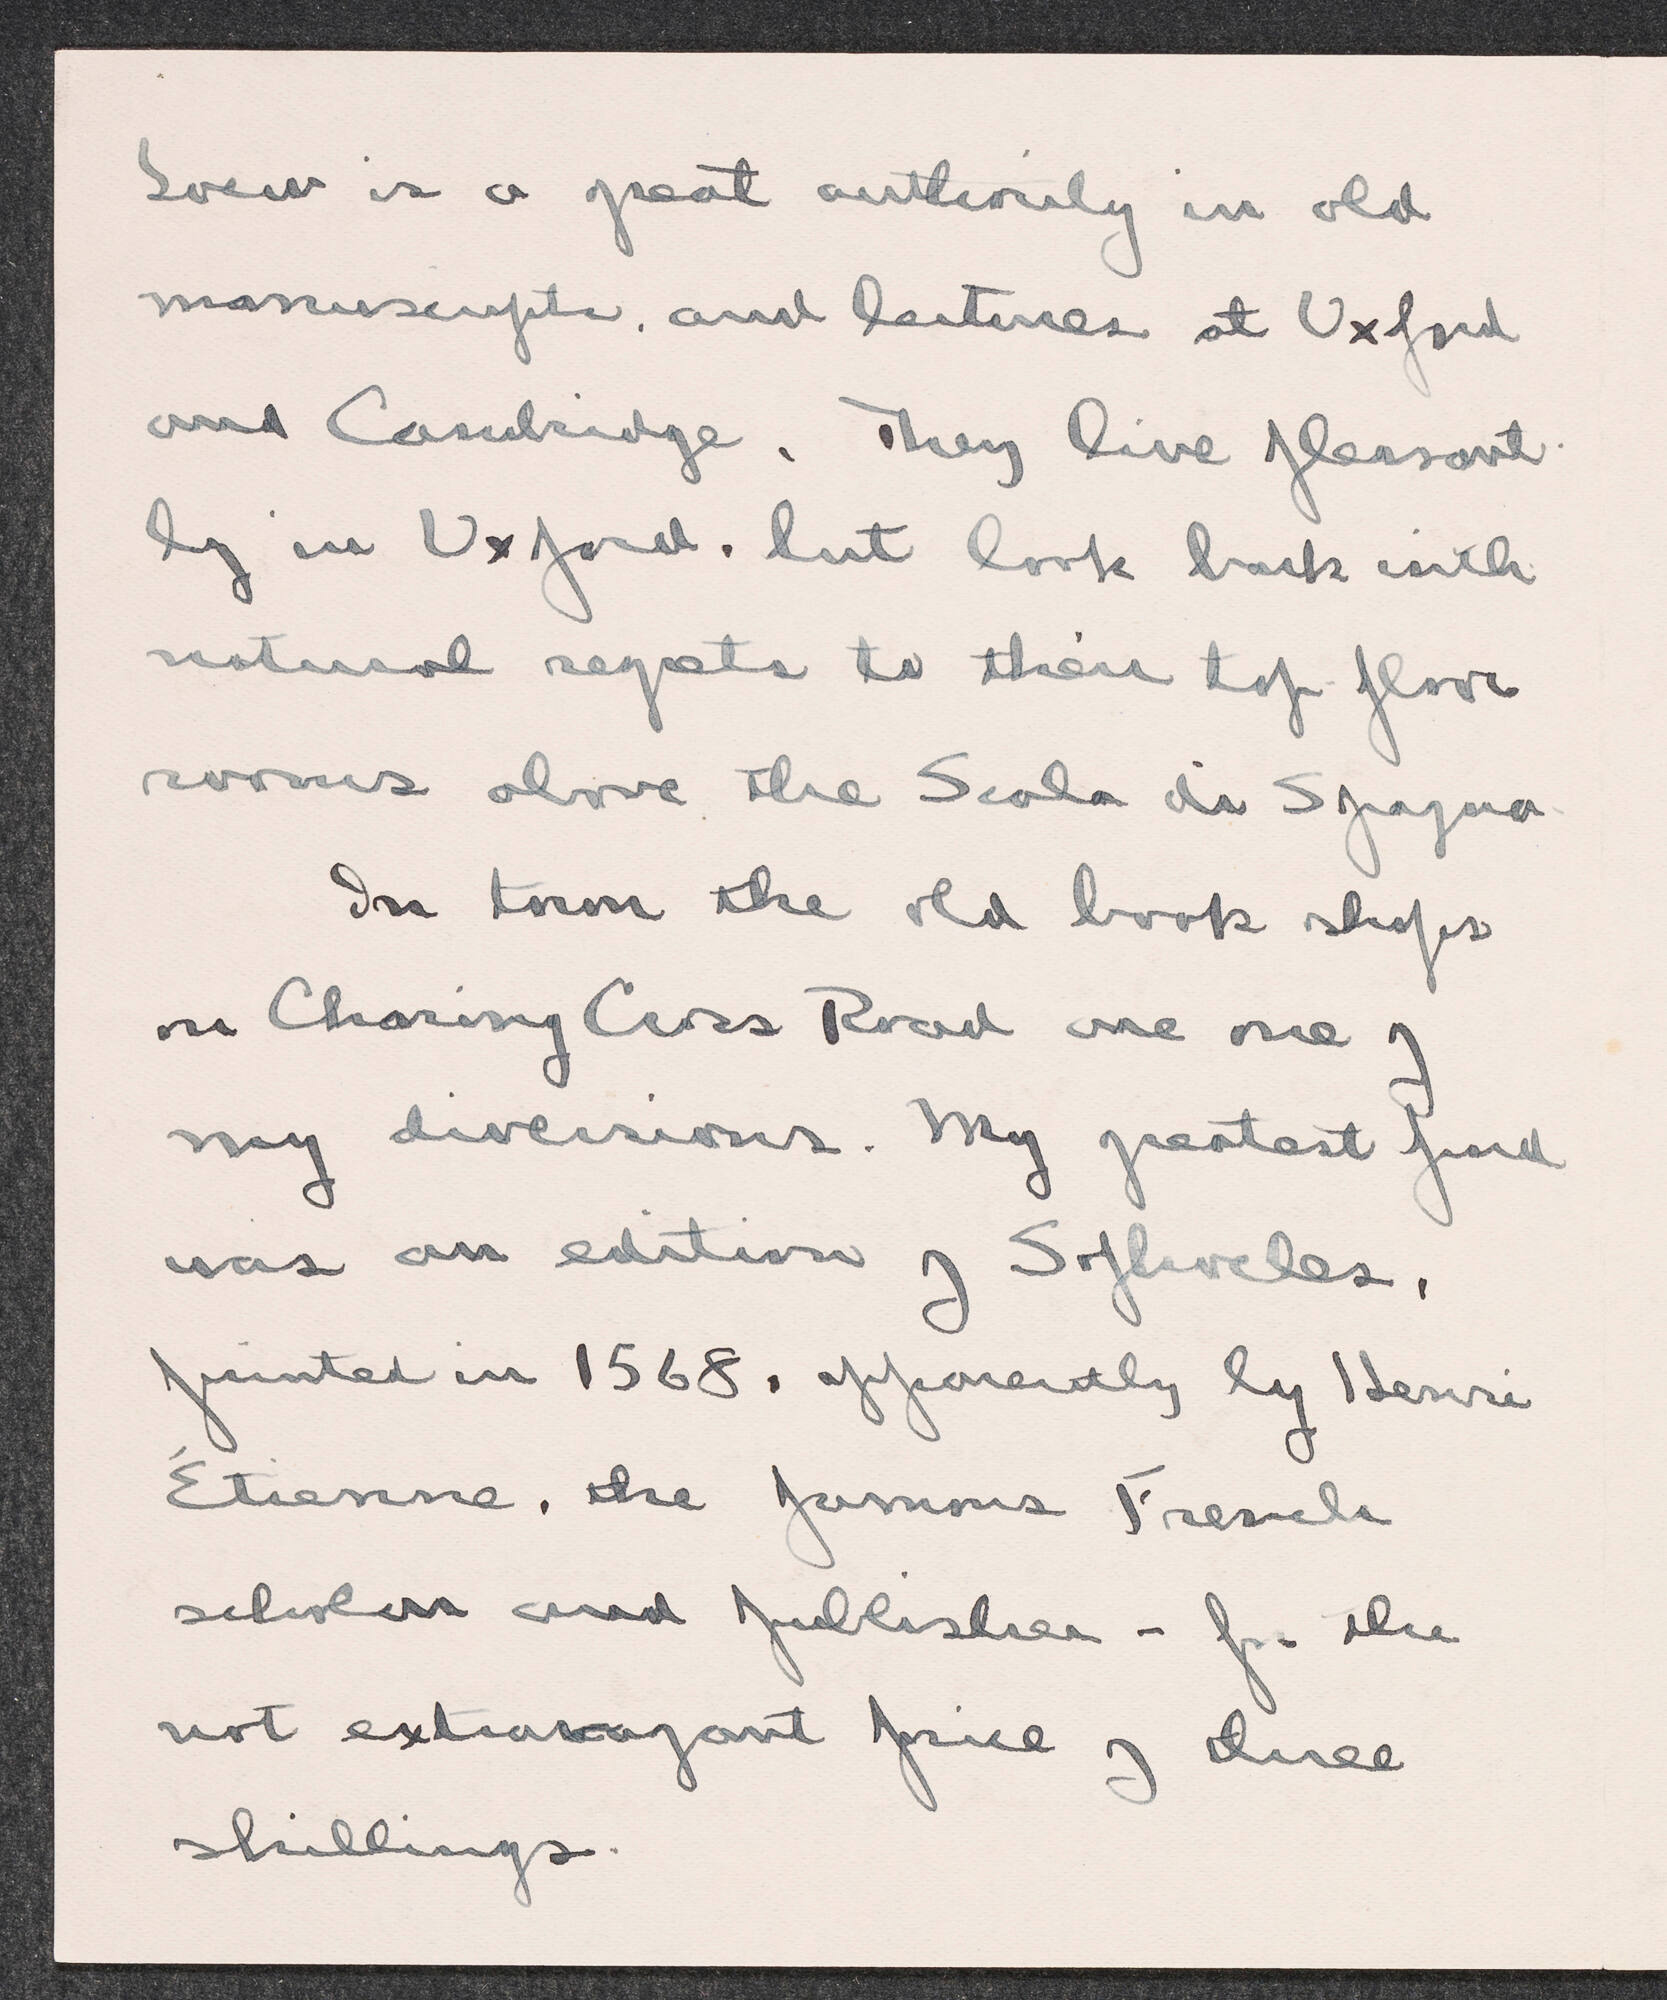 Loew is a great authority in old
manuscripts, and lectures at Oxford
and Cambridge. They live pleasant-
ly in Oxford, but look back with
natural regrets to their top floor
rooms above the Scala di Spagna.
In town the old book shops
on Charing Cross Road are one of
my diversions. My greatest find
was an edition of Sophocles,
printed in 1568, apparently by Henri
Étienne, the famous French
scholar and publisher - for the
not extravagant price of three
shillings.